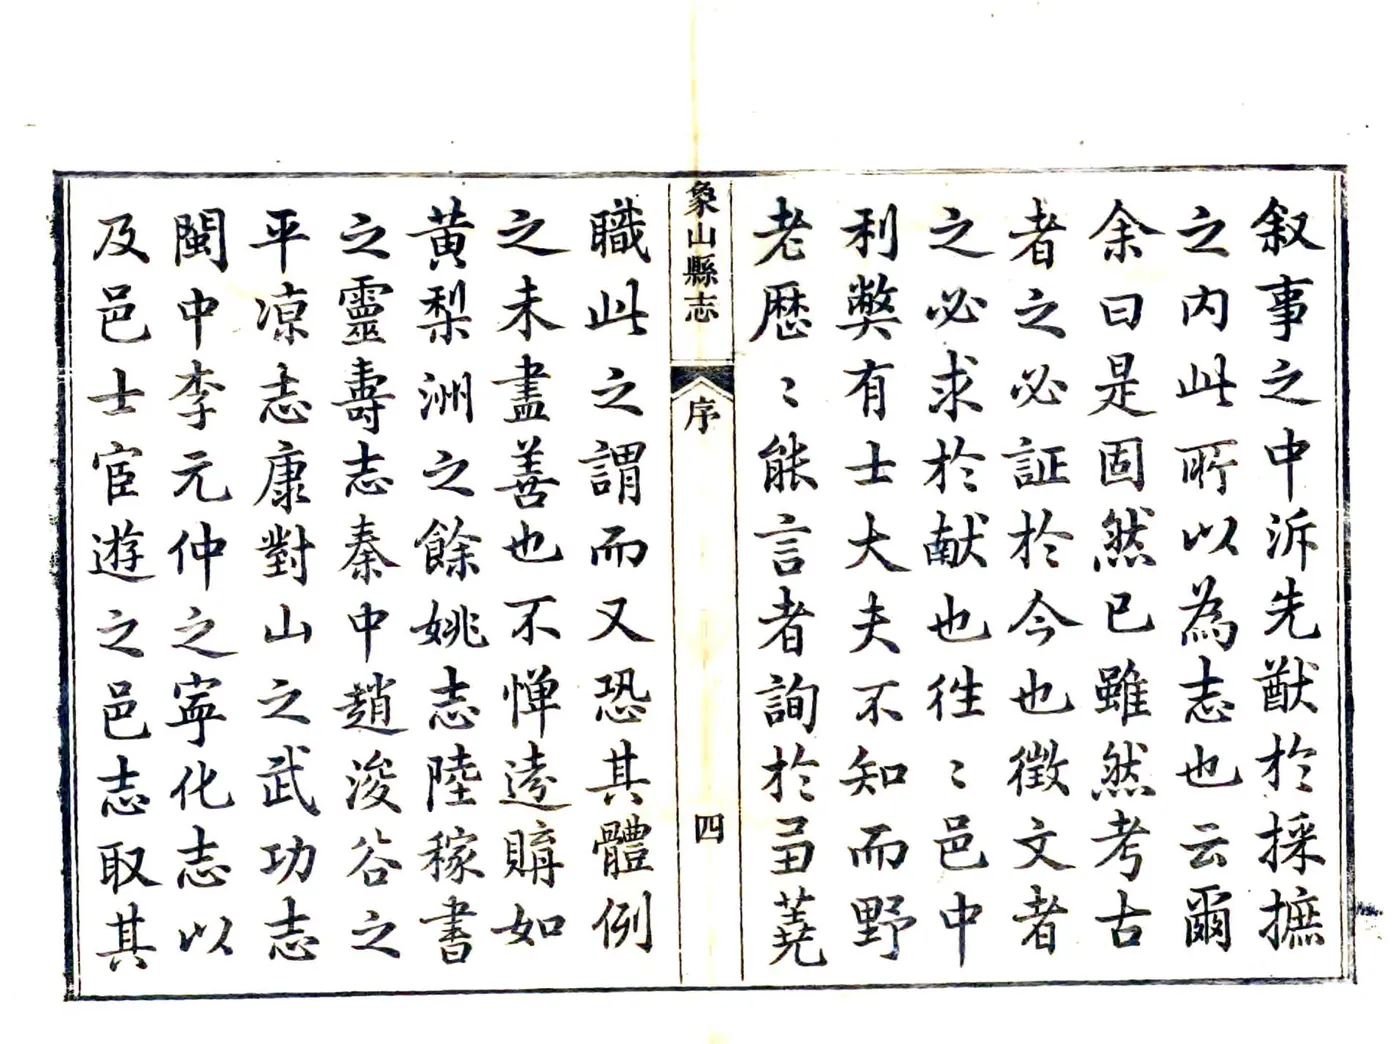 叙事之中泝先猷於採摭
之内此所以為志也云爾
余曰是固然已雖然考古
者之必証於今也徵文者
之必求於献也徃〻邑中
利獘有士大夫不知而野
老歴〻能言者詢於蕘
象山縣志
序
四
職此之謂而又恐其體例
之未盡善也不惮逺購如
黄梨洲之餘姚志陸稼書
之靈壽志秦中趙浚谷之
平凉志康對山之武功志
閩中李元仲之寧化志以
及邑士宦遊之邑志取其